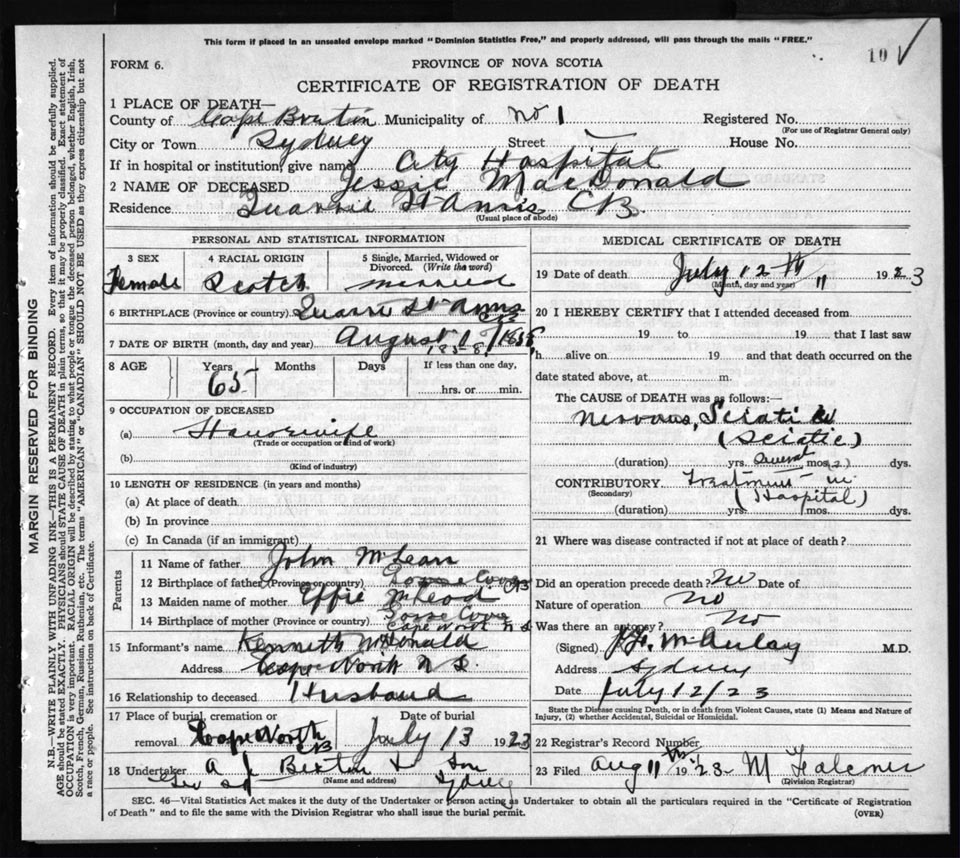 This form if placed in an unsealed envelope marked "Dominion Statistics Free," and properly addressed, will pass through the mails "FREE."
101
FORM 6. PROVINCE OF NOVA SCOTIA
CERTIFICATE OF REGISTRATION OF DEATH
1 PLACE OF DEATH—
County of Cape Breton Municipality of No 1 Registered No.
(For use of Registrar General only)
City or Town Sydney Street House No.
If in hospital or institution, give name City Hospital
2 NAME OF DECEASED Jessie MacDonald
Residence St Anns CB.
(Usual place of abode)
PERSONAL AND STATISTICAL INFORMATION
3 SEX 4 RACIAL ORIGIN 5 Single, Married, Widowed or Divorced. (Write the word)
Female Scotch married
6 BIRTHPLACE (Province or country) St Anns CB
7 DATE OF BIRTH (month, day and year) August 1858
1858
8 AGE Years Months Days If less than one day,
65 hrs. or min.
9 OCCUPATION OF DECEASED
(a) Housewife
(Trade or occupation or kind of work)
(b)
(Kind of industry)
10 LENGTH OF RESIDENCE (in years and months)
(a) At place of death
(b) In province
(c) In Canada (if an immigrant)
Parents
11 Name of father John McLean
12 Birthplace of father (Province or country) Cove CB
13 Maiden name of mother Effie McLeod
14 Birthplace of mother (Province or country) Cove
Cape North N S
15 Informant's name Kenneth McDonald
Address Cape North N S.
16 Relationship to deceased Husband
17 Place of burial, cremation or removal Cape North CB
Date of burial July 13 1923
18 Undertaker A J Bexton & Son
(Name and address)
Sydney
MEDICAL CERTIFICATE OF DEATH
19 Date of death July 12th 1923
(Month, day and year)
20 I HEREBY CERTIFY that I attended deceased from
19 to 19 that I last saw
h alive on 19 and that death occurred on the
date stated above, at m.
The CAUSE of DEATH was as follows:
Nervous,
(Sciatic)
(duration) yrs. several mos. (2) dys.
CONTRIBUTORY Treatment in
(Secondary) (Hospital)
(duration) yrs. mos. dys.
21 Where was disease contracted if not at place of death?
Did an operation precede death? No Date of
Nature of operation No
Was there an autopsy? No
(Signed) McAulay M.D.
Address Sydney
Date July 12/23
State the Disease causing Death, or in death from Violent Causes, state (1) Means and Nature of
Injury, (2) whether Accidental, Suicidal or Homicidal.
22 Registrar's Record Number
23 Filed Aug 11th 1923 M Falconer
(Division Registrar)
SEC. 46—Vital Statistics Act makes it the duty of the Undertaker or person acting as Undertaker to obtain all the particulars required in the "Certificate of Registration
of Death" and to file the same with the Division Registrar who shall issue the burial permit.
(OVER)
MARGIN RESERVED FOR BINDING
N.B.—WRITE PLAINLY WITH UNFADING INK—THIS IS A PERMANENT RECORD. Every item of information should be carefully supplied.
AGE should be stated EXACTLY. PHYSICIANS should STATE CAUSE OF DEATH in plain terms, so that it may be properly classified. Exact statement of
OCCUPATION is very important. RACIAL ORIGIN will be described by stating to what people or tongue the deceased person belonged, whether English, Irish,
Scotch, French, German, Russian, Ruthenian, etc. The terms "AMERICAN" or "CANADIAN" SHOULD NOT BE USED as they express citizenship but not
a race or people. See instructions on back of Certificate.